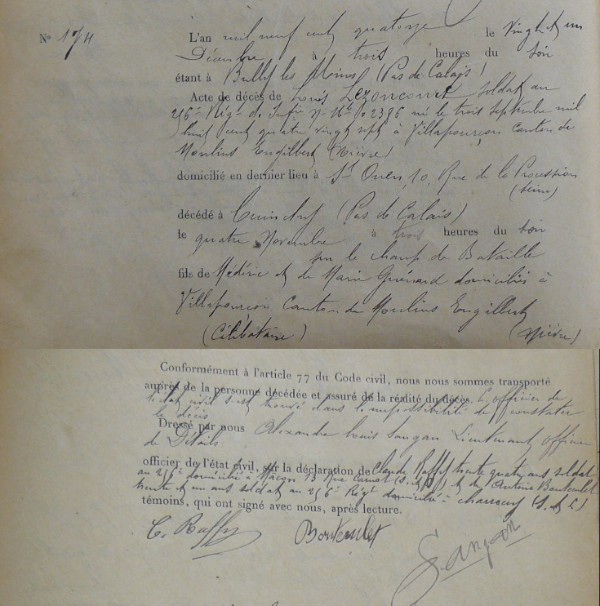 N° 174 L'an mil neuf cent quatorze le vingt et un
Décembre à trois heures du soir
étant à Bully les Mines (Pas de Calais)
Acte de décès de Louis Lezoncourt soldat au
256e Rég. de Infie N° Mle 02396 né le trois septembre mil
huit cent quatre vingt sept à Villapourçon Canton de
Moulins Engilbert (Nièvre)
domicilié en dernier lieu à St Ouen, 10, Rue de la Procession
(Seine)
décédé à Cuinchy (Pas de Calais)
le quatre Novembre à trois heures du soir
sur le champ de Bataille
fils de Médéric et de Marie Guénard domiciliés à
Villapourçon Canton de Moulins Engilbert
(Célibataire) (Nièvre)
Conformément à l'article 77 du Code civil, nous nous sommes transporté
auprès de la personne décédée et assuré de la réalité du décès. L'officier de
l'état civil s'est trouvé dans l'impossibilité de constater
le décès
Dressé par nous Alexandre Louis Lieutenant officier
de Détails
officier de l'état civil, sur la déclaration de Claude Raffy trente quatre ans soldat
au 256e domicilié à Macon 13 Rue Carnot (S. & L.) et de Antoine
trente et un ans soldat au 256e Régt domicilié à (S. & L.)
témoins, qui ont signé avec nous, après lecture.
C. Raffy